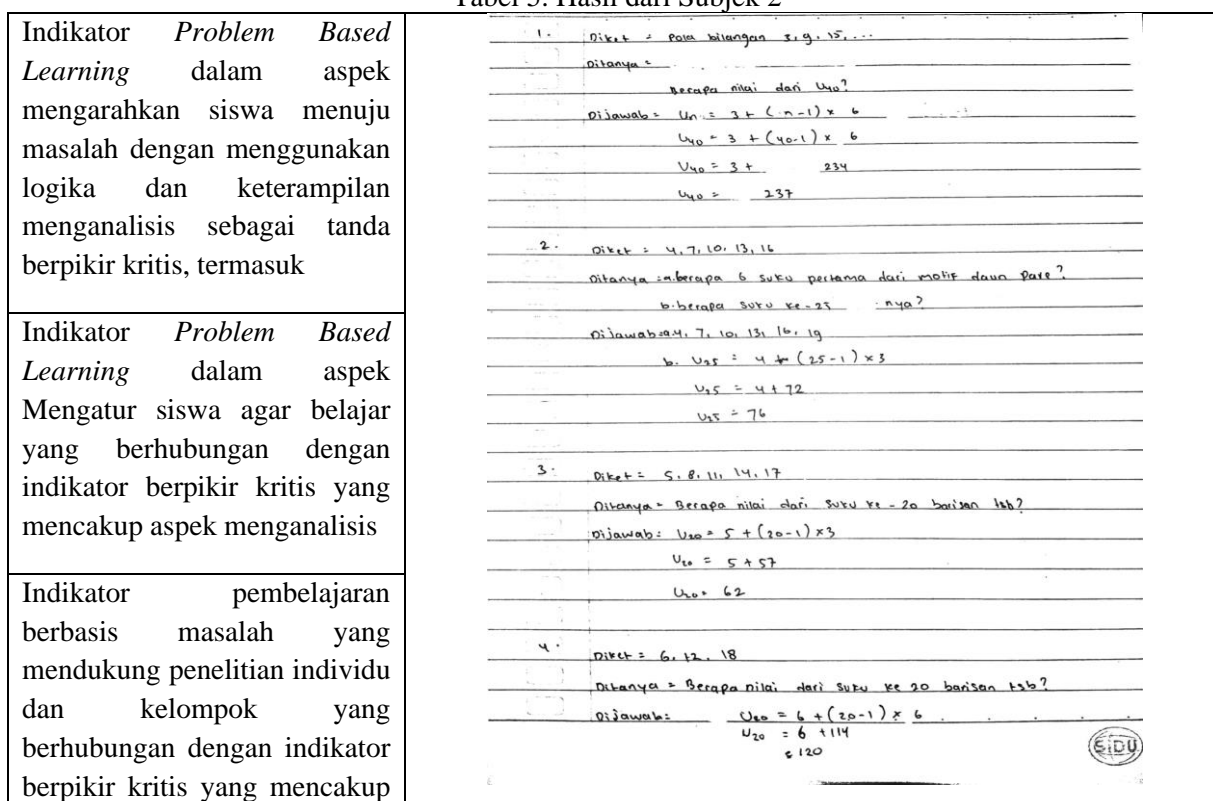 Tabel 5. Hasil dari Subjek 2
Indikator Problem Based
Learning dalam aspek
mengarahkan siswa menuju
masalah dengan menggunakan
logika dan keterampilan
menganalisis sebagai tanda
berpikir kritis, termasuk
Indikator Problem Based
Learning dalam aspek
Mengatur siswa agar belajar
yang berhubungan dengan
indikator berpikir kritis yang
mencakup aspek menganalisis
Indikator pembelajaran
berbasis masalah yang
mendukung penelitian individu
dan kelompok yang
berhubungan dengan indikator
berpikir kritis yang mencakup
1. Diket = Pola bilangan 3, 9, 15, ...
Ditanya =
Berapa nilai dari U40?
Dijawab = Un = 3 + (n-1) × 6
U40 = 3 + (40-1) × 6
U40 = 3 + 234
U40 = 237
2. Diket = 4, 7, 10, 13, 16
Ditanya = a. berapa 6 suku pertama dari motif daun Pare?
b. berapa suku ke-25 nya?
Dijawab = a. 4, 7, 10, 13, 16, 19
b. U25 = 4 + (25-1) × 3
U25 = 4 + 72
U25 = 76
3. Diket = 5, 8, 11, 14, 17
Ditanya = Berapa nilai dari suku ke-20 barisan tsb?
Dijawab: U20 = 5 + (20-1) × 3
U20 = 5 + 57
U20 = 62
4. Diket = 6, 12, 18
Ditanya = Berapa nilai dari suku ke 20 barisan tsb?
Dijawab: U20 = 6 + (20-1) × 6
U20 = 6 + 114
= 120
SiDU